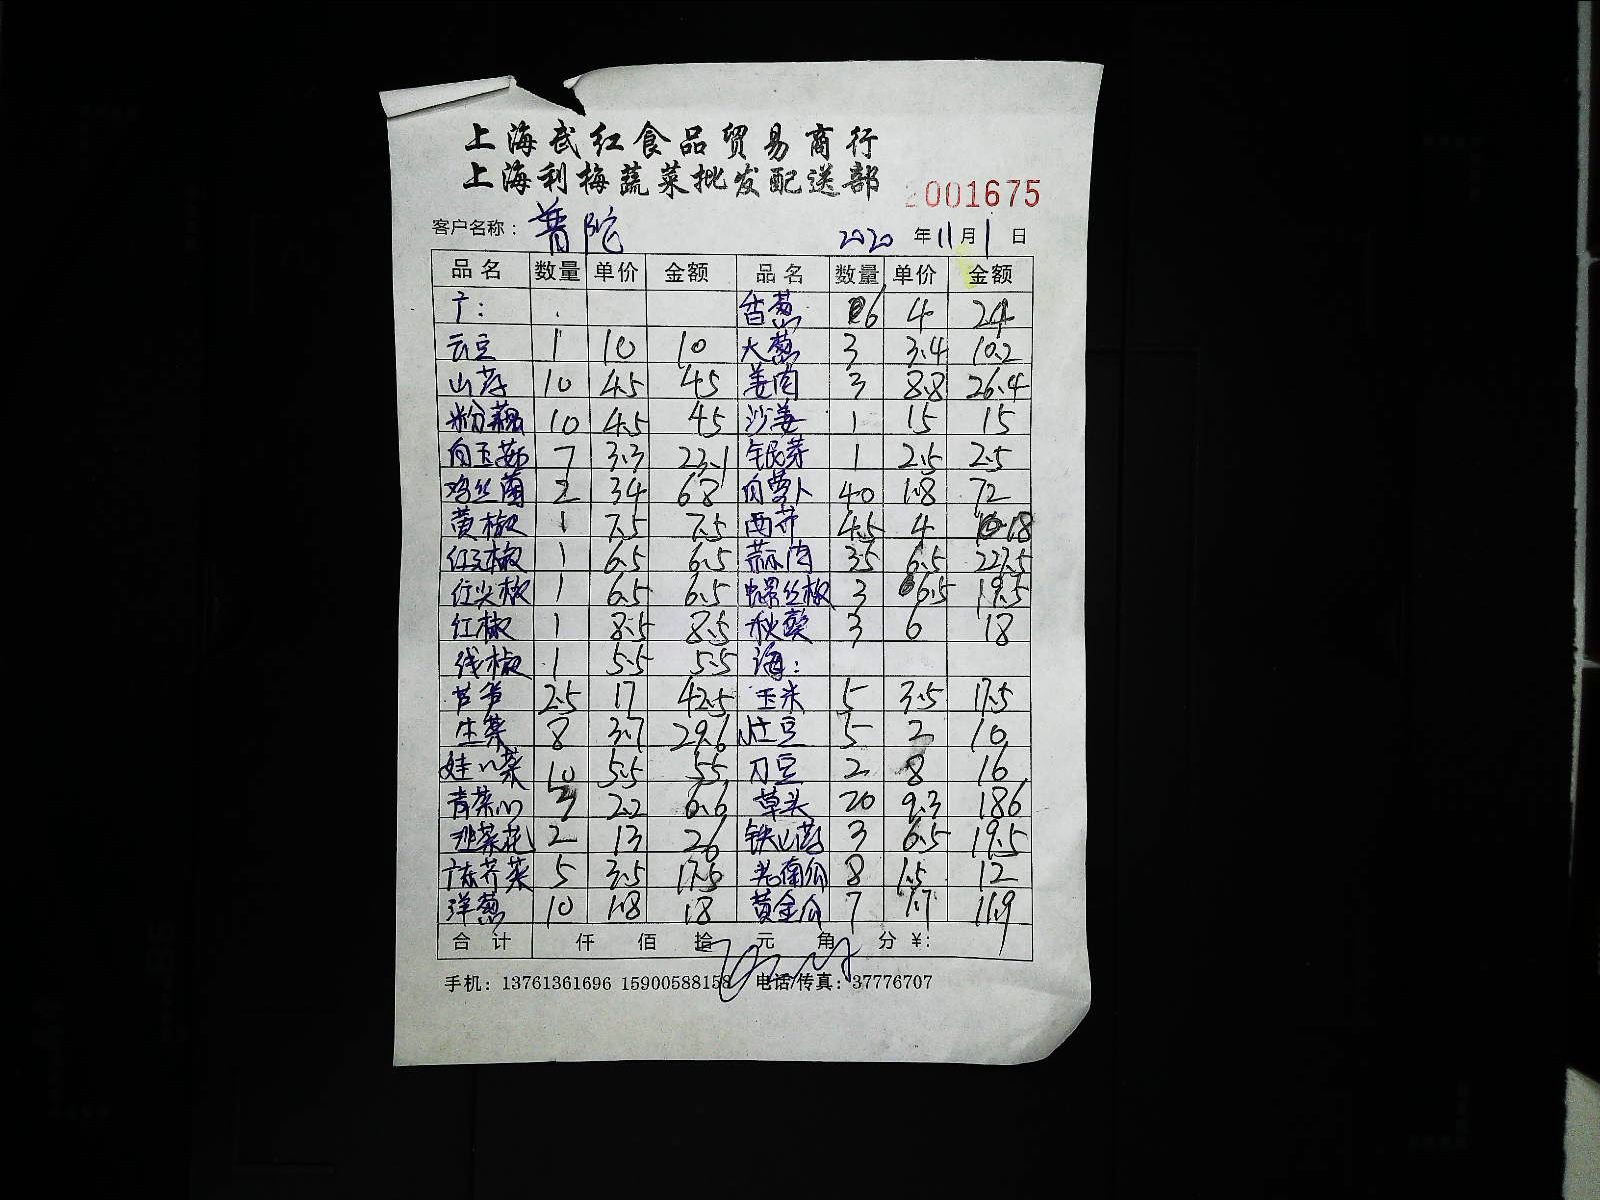 上海武红食品贸易商行
上海利梅蔬菜批发配送部
001675
客户名称：普陀 2020年11月1日
品名 数量 单价 金额 品名 数量 单价 金额
广： 香葱 6 4 24
云豆 1 10 10 大葱 3 3.4 10.2
山药 10 4.5 45 姜肉 3 8.8 26.4
粉藕 10 4.5 45 沙姜 1 15 15
白玉菇 7 3.3 23.1 银芽 1 2.5 2.5
鸡丝菌 2 34 68 白萝卜 40 1.8 72
黄椒 1 7.5 7.5 西芹 4.5 4 18
红元椒 1 6.5 6.5 蒜肉 35 6.5 227.5
红尖椒 1 6.5 6.5 螺丝椒 3 6.5 19.5
红椒 1 8.5 8.5 秋葵 3 6 18
线椒 1 5.5 5.5 海：
芦笋 2.5 17 42.5 玉米 5 3.5 17.5
生菜 8 3.7 29.6 豆 5 2 10
娃娃菜 10 5.5 55 刀豆 2 8 16
青菜心 3 2.2 6.6 草头 20 9.3 186
菜花 2 13 26 铁山药 3 6.5 19.5
广东芥菜 5 3.5 17.5 老南瓜 8 1.5 12
洋葱 10 1.8 18 黄金瓜 7 1.7 11.9
合计 仟 佰 拾 元 角 分 ¥:
手机：13761361696 15900588158 电话/传真：37776707